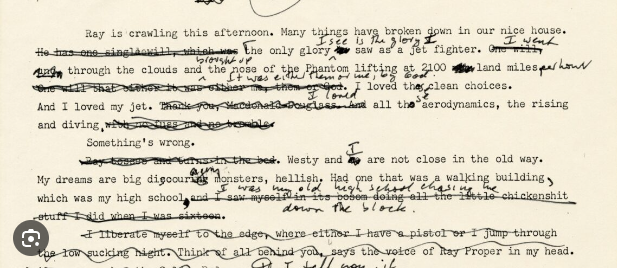 Ray is crawling this afternoon. Many things have broken down in our nice house.
I see is the glory I
I went
He has one single will, which was the only glory saw as a jet fighter. One will,
brought up
and through the clouds and the nose of the Phantom lifting at 2100 land miles per hour
It was either them or me, by God.
One will that either it was either me, them or God. I loved those clean choices.
I loved
And I loved my jet. Thank you, McDonald-Douglass. And all the aerodynamics, the rising
and diving, with no fuss and no trouble.
Something's wrong.
I
Ray tosses and turns in the bed. Westy and are not close in the old way.
My dreams are big monsters, hellish. Had one that was a walking building,
I was my old high school chasing me
which was my high school, and I saw myself in its bottom doing all the little chickenshit
down the block.
stuff I did when I was sixteen.
I liberate myself to the edge, where either I have a pistol or I jump through
the low sucking night. Think of all behind you, says the voice of Ray Proper in my head.
I tell you it